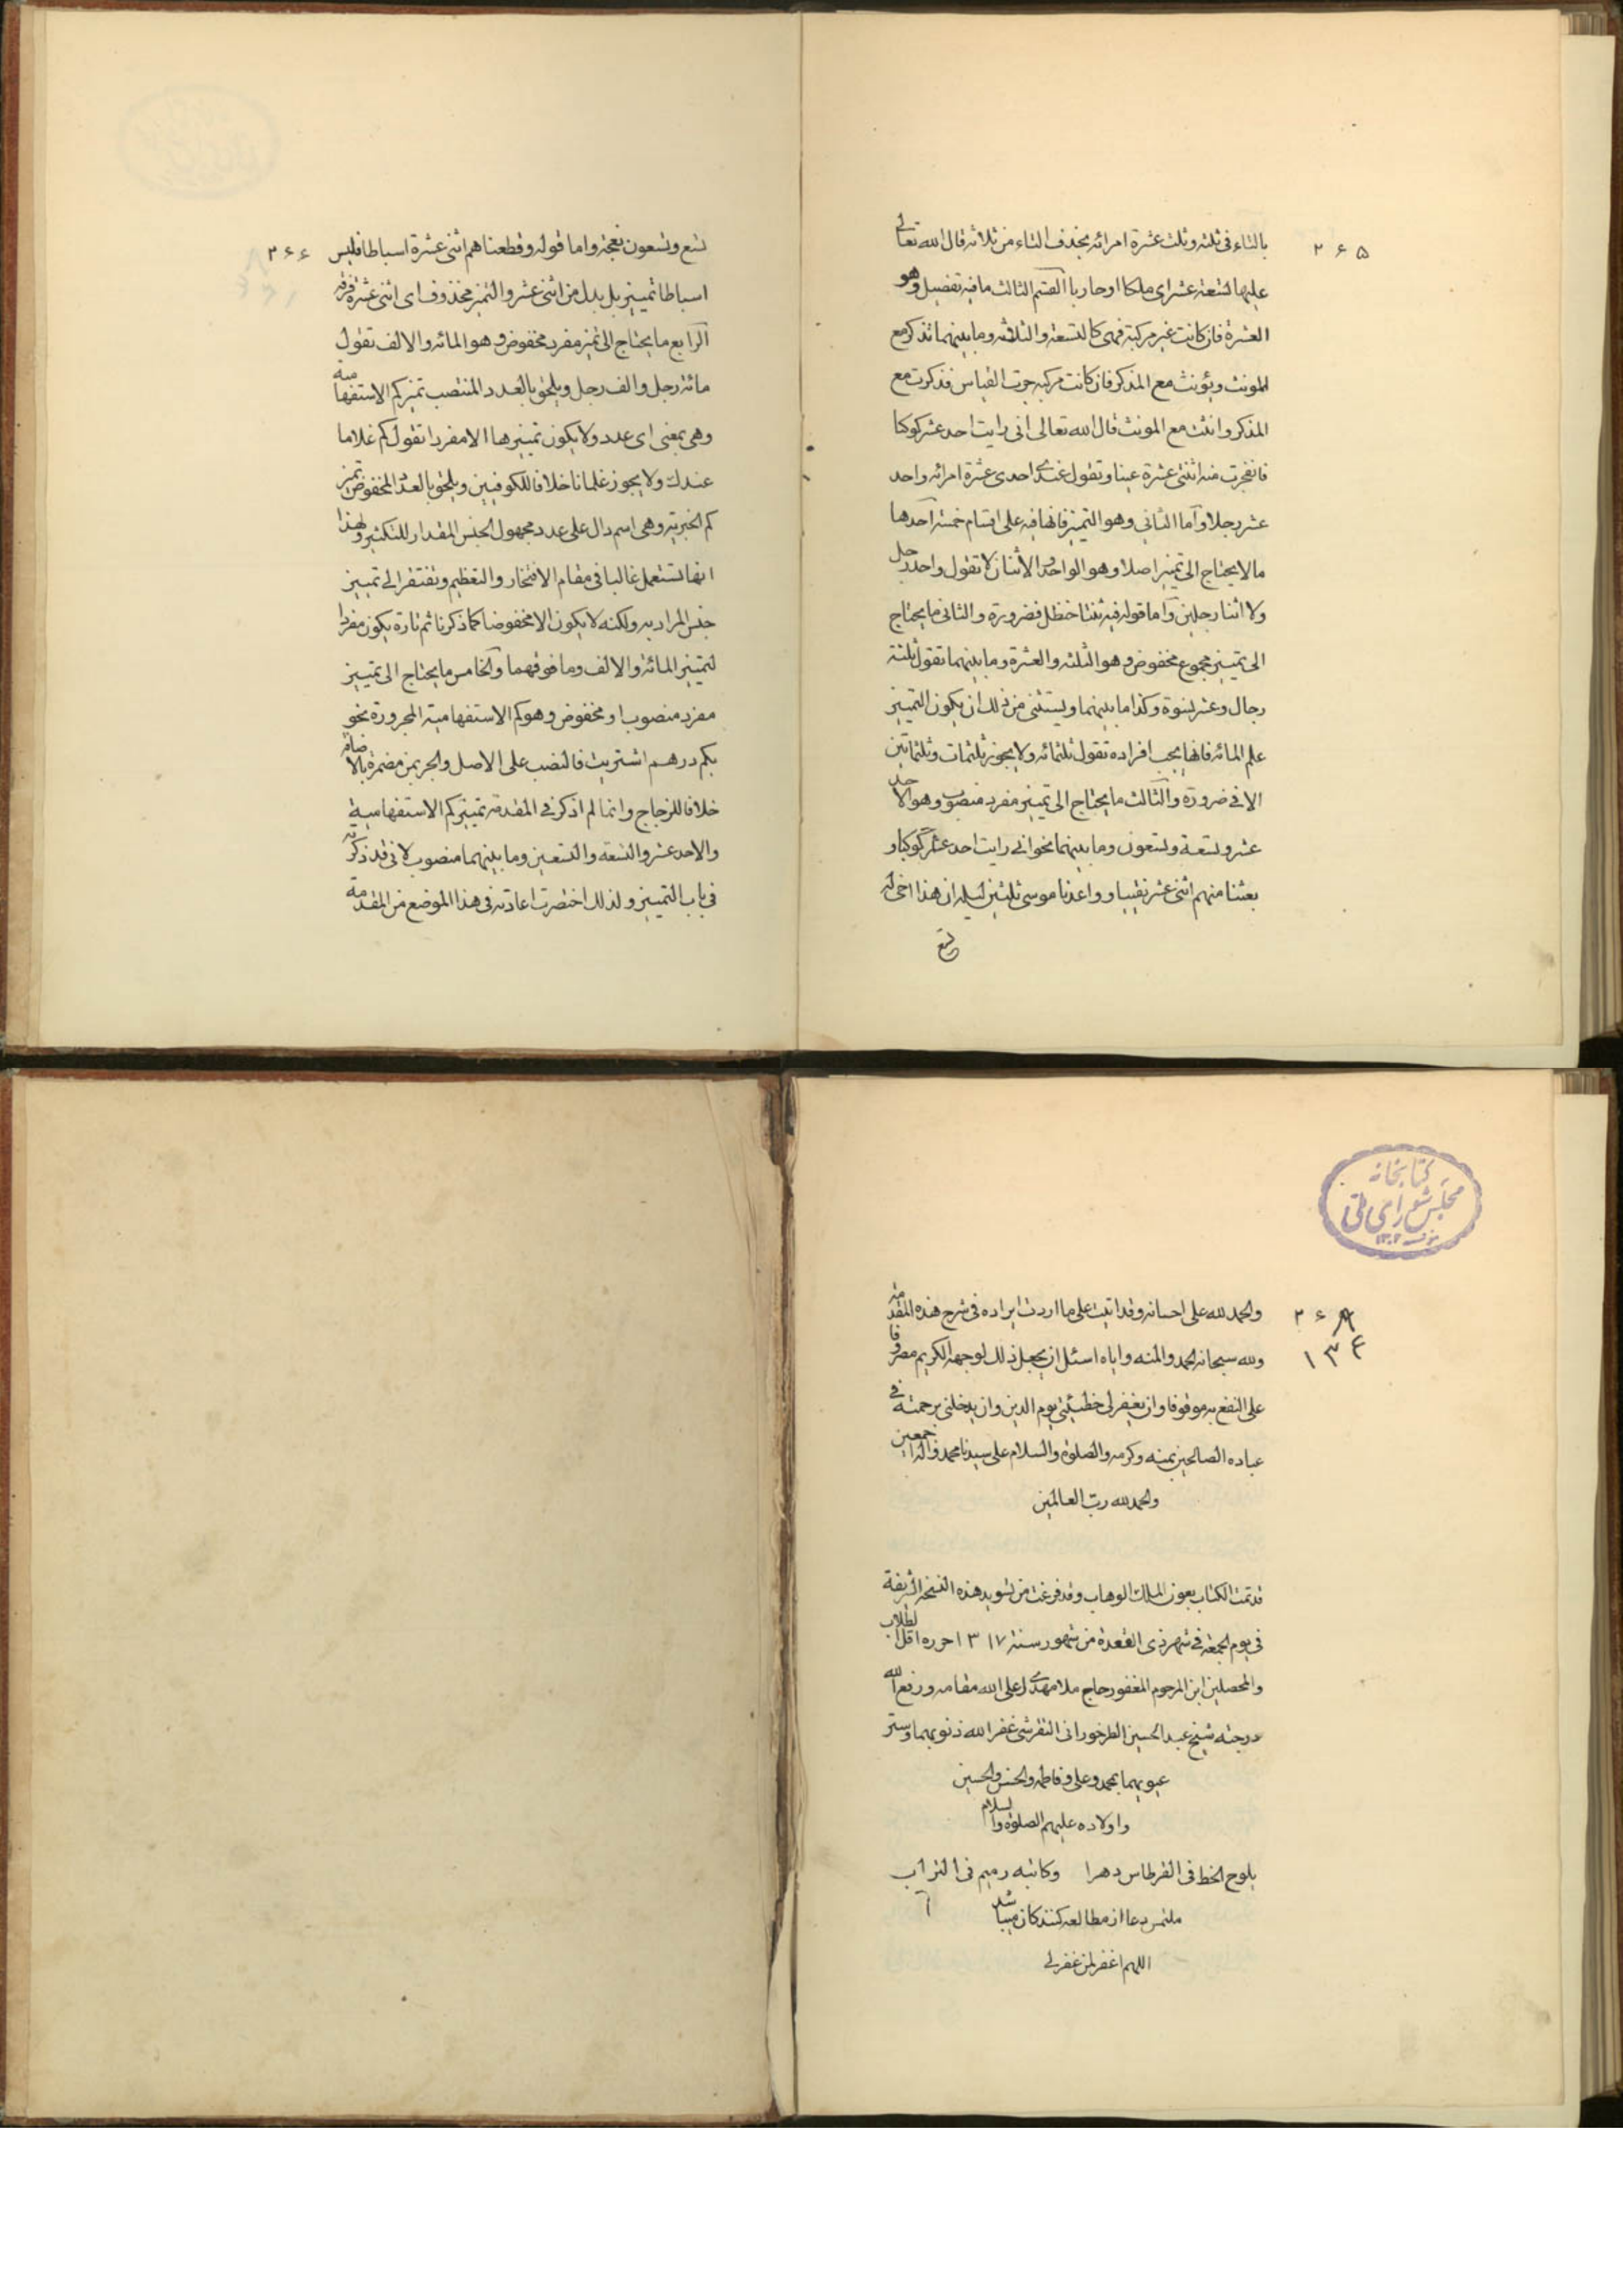 ۲۶۵
بالتاء فی ثلثه وثلث عشرة امرائه بحذف التاء من ثلاثه قال الله تعالی
علیها تسعة عشر ای ملکا او حاربا القسم الثالث ما فیه تفصیل وهو
العشرة فان کانت غیر مرکبة فهی کالتسعة والثلاثه وما بینهما تذکر مع
المونث ویؤنث مع المذکر فان کانت مرکبه جرت القیاس فذکرت مع
المذکر وانثت مع المونث قال الله تعالی انی رایت احد عشر کوکبا
فانفجرت منه اثنتی عشرة عینا وتقول عندی احدی عشرة امرائه واحد
عشر رجلا وآما الثانی وهو التمیز فانها فیه علی اقسام خمسة احدها
ما لا یحتاج الی تمییز اصلا وهو الواحد والاثنان لا تقول واحد رجل
ولا اثنا رجلین وآما قوله فیه ثنتا حنظل فضرورة والثانی ما یحتاج
الی تمییز مجموع مخفوض وهو الثلثه والعشرة وما بینهما تقول ثلثة
رجال وعشر نسوة وکذا ما بینهما ویستثنی من ذلک ان یکون التمییز
علم المائه فانها یجب افراده تقول ثلثمائه ولا یجوز ثلثمات وثلثماتین
الا فی ضرورة والثالث ما یحتاج الی تمییز مفرد منصوب وهو الاحد
عشر وتسعة وتسعون وما بینهما نحو انی رایت احد عشر کوکبا و
بعثنا منهم اثنی عشر نقیبا وواعدنا موسی ثلثین لیله ان هذا اخی له
تسع
۲۶۶
تسع وتسعون نعجة واما قوله وقطعناهم اثنتی عشرة اسباطا فلیس
اسباطا تمییز بل بدل من اثنی عشر والتمیز محذوف ای اثنی عشرة فرقة
الرابع ما یحتاج الی تمیز مفرد مخفوض وهو المائه والالف تقول
مائة رجل والف رجل ویلحق بالعدد المنتصب تمیز کم الاستفهامیه
وهی بمعنی ای عدد ولا یکون تمییزها الا مفردا تقول کم غلاما
عندک ولا یجوز غلمانا خلافا للکوفیین ویلحق بالعدد المخفوض تمیز
کم الخبریه وهی اسم دال علی عدد مجهول الجنس المقدار للتکثیر ولهذا
انها تستعمل غالبا فی مقام الافتخار والتعظیم وتفتقر الی تمییز
جنس المراد به ولکنه لا یکون الا مخفوضا کما ذکرنا ثم تارة یکون مفردا
لتمییز المائة والالف وما فوقهما والخامس ما یحتاج الی تمییز
مفرد منصوب او مخفوض وهو کم الاستفهامیة المجرورة نحو
بکم درهم اشتریت فالنصب علی الاصل والجر بمن مضمرة بالاضافة
خلافا للزجاج وانما لم اذکر فی المقدمة تمییز کم الاستفهامیة
والاحد عشر والتسعة والتسعین وما بینهما منصوب لانی قد ذکرته
فی باب التمییز ولذلک اختصرت اعادته فی هذا الموضع من المقدمة
کتابخانه
مجلس شورای ملی
۱۳۰۲
والحمد لله علی احسانه وقد اتیت علی ما اردت ایراده فی شرح هذه المقدمة
ولله سبحانه الحمد والمنه وایاه اسئل ان یجعل ذلک لوجهه الکریم مصروفا
۱۳۴
علی النفع به موقوفا وان یغفر لی خطیئتی یوم الدین وان یدخلنی برحمته فی
عباده الصالحین بمنه وکرمه والصلوة والسلام علی سیدنا محمد واله اجمعین
والحمد لله رب العالمین
قد تمت الکتاب بعون الملک الوهاب وقد فرغت من تسوید هذه النسخة الشریفة
فی یوم الجمعة فی شهر ذی القعدة من شهور سنة ۱۳۱۷ حرره اقل الطلاب
والمحصلین ابن المرحوم المغفور حاج ملا مهدی اعلی الله مقامه ورفع الله
درجته شیخ عبد الحسین الطرخورانی التفرشی غفر الله ذنوبهما وستر
عیوبهما بمحمد وعلی وفاطمه والحسن والحسین
واولاده علیهم الصلوة والسلام
یلوح الخط فی القرطاس دهرا وکاتبه رمیم فی التراب
ملتمس دعا از مطالعه کنندکان میباشد
اللهم اغفر لمن غفر لی